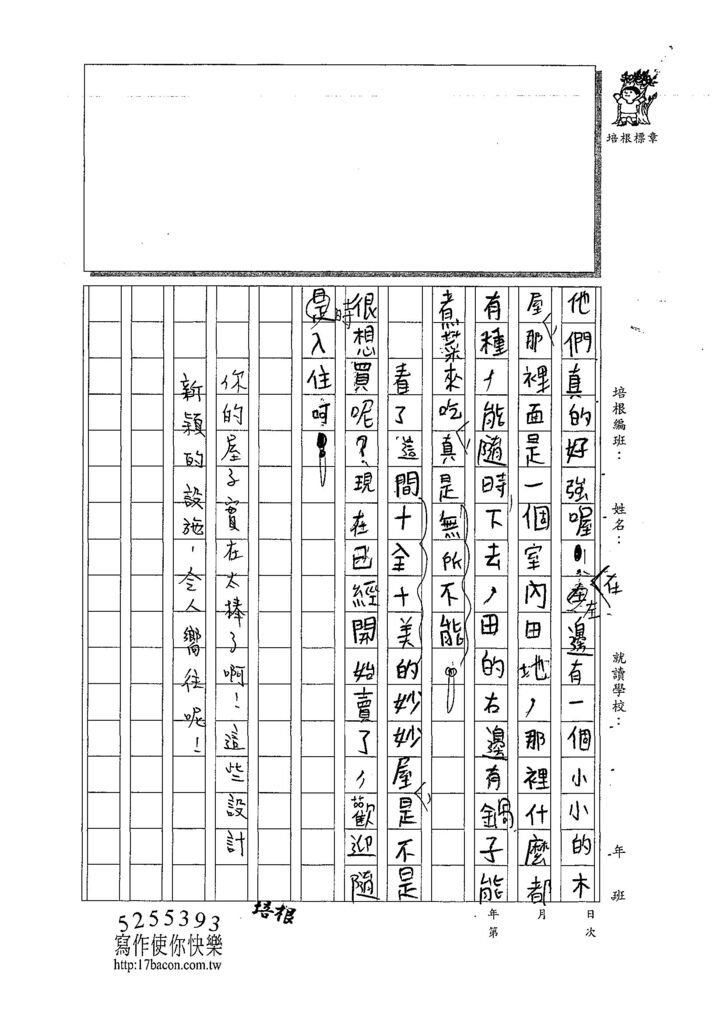 培根標章
培根編班：
姓名：
就讀學校：
年 班
日 月 年
次 第
他們真的好強喔！在左邊有一個小小的木
屋，那裡面是一個室內田地，那裡什麼都
有種，能隨時下去，田的右邊有鍋子能
煮菜來吃，真是無所不能。
看了這間十全十美的妙妙屋，是不是
很想買呢？現在已經開始賣了，歡迎隨
時入住呵！
你的屋子實在太棒了啊！這些設計
新穎的設施，令人嚮往呢！
培根
5255393
寫作使你快樂
http:17bacon.com.tw